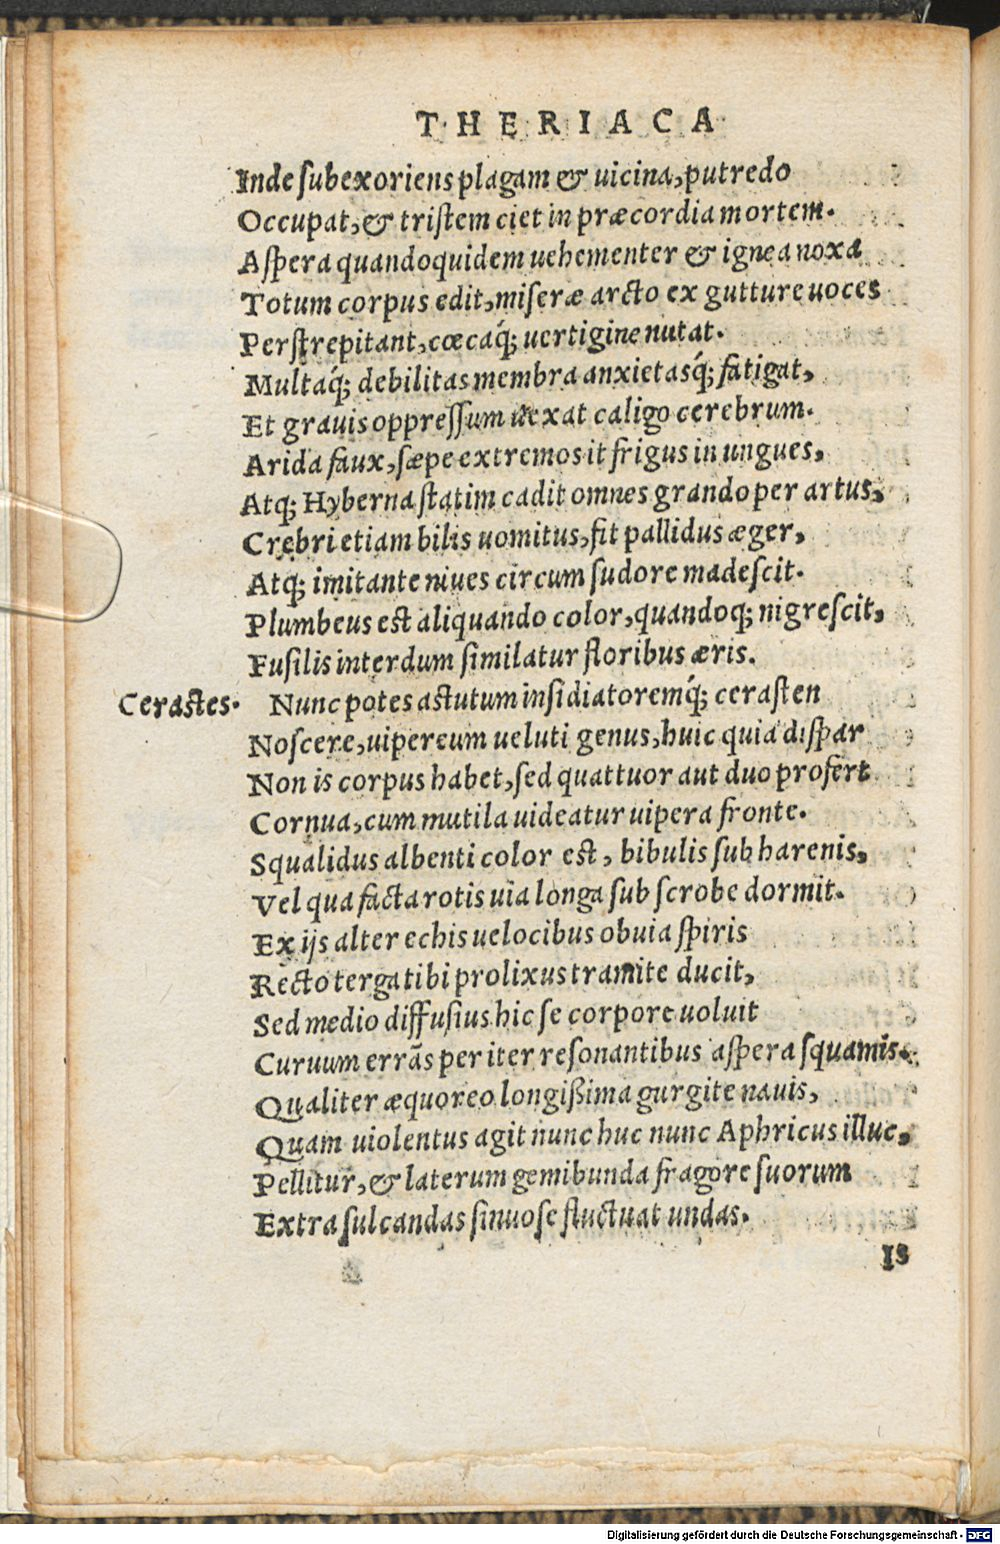 THERIACA
Inde subexoriens plagam & uicina, putredo
Occupat, & tristem ciet in præcordia mortem.
Aspera quandoquidem uehementer & ignea noxa
Totum corpus edit, miseræ arcto ex gutture uoces
Perstrepitant, cœcaq́; uertigine nutat.
Multaq́; debilitas membra anxietasq́; fatigat,
Et grauis oppressum uexat caligo cerebrum.
Arida faux, sæpe extremos it frigus in ungues,
Atq; Hyberna statim cadit omnes grando per artus,
Crebri etiam bilis uomitus, fit pallidus æger,
Atq; imitante niues circum sudore madescit.
Plumbeus est aliquando color, quandoq; nigrescit,
Fusilis interdum similatur floribus æris.
Cerastes. Nunc potes astutum insidiatoremq́; cerasten
Noscere, uipereum ueluti genus, huic quia dispar
Non is corpus habet, sed quattuor aut duo profert
Cornua, cum mutila uideatur uipera fronte.
Squalidus albenti color est, bibulis sub harenis,
Vel qua facta rotis uia longa sub scrobe dormit.
Ex ijs alter echis uelocibus obuia spiris
Recto terga tibi prolixus tramite ducit,
Sed medio diffusius hic se corpore uoluit
Curuum errãs per iter resonantibus aspera squamis.
Qualiter æquoreo longißima gurgite nauis,
Quam uiolentus agit nunc huc nunc Aphricus illuc,
Pellitur, & laterum gemibunda fragore suorum
Extra sulcandas sinuose fluctuat undas.
IS
Digitalisierung gefördert durch die Deutsche Forschungsgemeinschaft - DFG